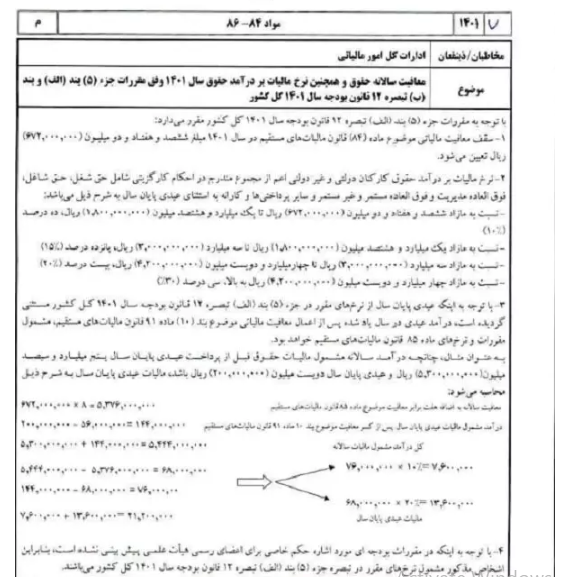 ۷ ۱۴۰۱ مواد ۸۴– ۸۶ م
مخاطبان/ذینفعان ادارات کل امور مالیاتی
موضوع معافیت سالانه حقوق و همچنین نرخ مالیات بر درآمد حقوق سال ۱۴۰۱ وفق مقررات جزء (۵) بند (الف) و بند
(ب) تبصره ۱۲ قانون بودجه سال ۱۴۰۱ کل کشور
با توجه به مقررات جزء (۵) بند (الف) تبصره ۱۲ قانون بودجه سال ۱۴۰۱ کل کشور مقرر می‌دارد:
۱–سقف معافیت مالیاتی موضوع ماده (۸۴) قانون مالیات‌های مستقیم در سال ۱۴۰۱ مبلغ ششصد و هفتاد و دو میلیون (۶۷۲,۰۰۰,۰۰۰)
ریال تعیین می‌شود.
۲–نرخ مالیات بر درآمد حقوق کارکنان دولتی و غیر دولتی اعم از مجموع مندرج در احکام کارگزینی شامل حق شغل، حق شاغل،
فوق العاده مدیریت و فوق العاده مستمر و غیر مستمر و سایر پرداختی‌ها و کارانه به استثنای عیدی پایان سال به شرح ذیل می‌باشد:
–نسبت به مازاد ششصد و هفتاد و دو میلیون (۶۷۲,۰۰۰,۰۰۰) ریال تا یک میلیارد و هشتصد میلیون (۱,۸۰۰,۰۰۰,۰۰۰) ریال، ده درصد
(۱۰٪)
–نسبت به مازاد یک میلیارد و هشتصد میلیون (۱,۸۰۰,۰۰۰,۰۰۰) ریال تا سه میلیارد (۳,۰۰۰,۰۰۰,۰۰۰) ریال، پانزده درصد (۱۵٪)
–نسبت به مازاد سه میلیارد (۳,۰۰۰,۰۰۰,۰۰۰) ریال تا چهارمیلیارد و دویست میلیون (۴,۲۰۰,۰۰۰,۰۰۰) ریال، بیست درصد (۲۰٪)
–نسبت به مازاد چهار میلیارد و دویست میلیون (۴,۲۰۰,۰۰۰,۰۰۰) ریال به بالا، سی درصد (۳۰٪)
۳–با توجه به اینکه عیدی پایان سال از نرخ‌های مقرر در جزء (۵) بند (الف) تبصره ۱۲ قانون بودجه سال ۱۴۰۱ کل کشور مستثنی
گردیده است، درآمد عیدی در سال یاد شده پس از اعمال معافیت مالیاتی موضوع بند (۱۰) ماده ۹۱ قانون مالیات‌های مستقیم، مشمول
مقررات و نرخ‌های ماده ۸۵ قانون مالیات‌های مستقیم خواهد بود.
به عنوان مثال، چنانچه درآمد سالانه مشمول مالیات حقوق قبل از پرداخت عیدی پایان سال پنج میلیارد و سیصد
میلیون(۵,۳۰۰,۰۰۰,۰۰۰) ریال و عیدی پایان سال دویست میلیون (۲۰۰,۰۰۰,۰۰۰) ریال باشد، مالیات عیدی پایان سال به شرح ذیل
محاسبه می‌شود:
معافیت سالانه به اضافه هفت برابر معافیت موضوع ماده ۸۵ قانون مالیات‌های مستقیم ۶۷۲,۰۰۰,۰۰۰ × ۸ = ۵,۳۷۶,۰۰۰,۰۰۰
درآمد مشمول مالیات عیدی پایان سال پس از کسر معافیت موضوع بند ۱۰ ماده ۹۱ قانون مالیات‌های مستقیم ۲۰۰,۰۰۰,۰۰۰ – ۵۶,۰۰۰,۰۰۰ = ۱۴۴,۰۰۰,۰۰۰
کل درآمد مشمول مالیات سالانه ۵,۳۰۰,۰۰۰,۰۰۰ + ۱۴۴,۰۰۰,۰۰۰ = ۵,۴۴۴,۰۰۰,۰۰۰
۵,۴۴۴,۰۰۰,۰۰۰ – ۵,۳۷۶,۰۰۰,۰۰۰ = ۶۸,۰۰۰,۰۰۰
۷۶,۰۰۰,۰۰۰ × ۱۰٪ = ۷,۶۰۰,۰۰۰
۱۴۴,۰۰۰,۰۰۰ – ۶۸,۰۰۰,۰۰۰ = ۷۶,۰۰۰,۰۰
۶۸,۰۰۰,۰۰۰ × ۲۰٪ = ۱۳,۶۰۰,۰۰۰
۷,۶۰۰,۰۰۰ + ۱۳,۶۰۰,۰۰۰ = ۲۱,۲۰۰,۰۰۰
مالیات عیدی پایان سال
۴–با توجه به اینکه در مقررات بودجه ای مورد اشاره حکم خاصی برای اعضای رسمی هیأت علمی پیش بینی نشده است، بنابراین
اشخاص مذکور مشمول نرخ‌های مقرر در تبصره جزء (۵) بند (الف) تبصره ۱۲ قانون بودجه سال ۱۴۰۱ کل کشور می‌باشند.